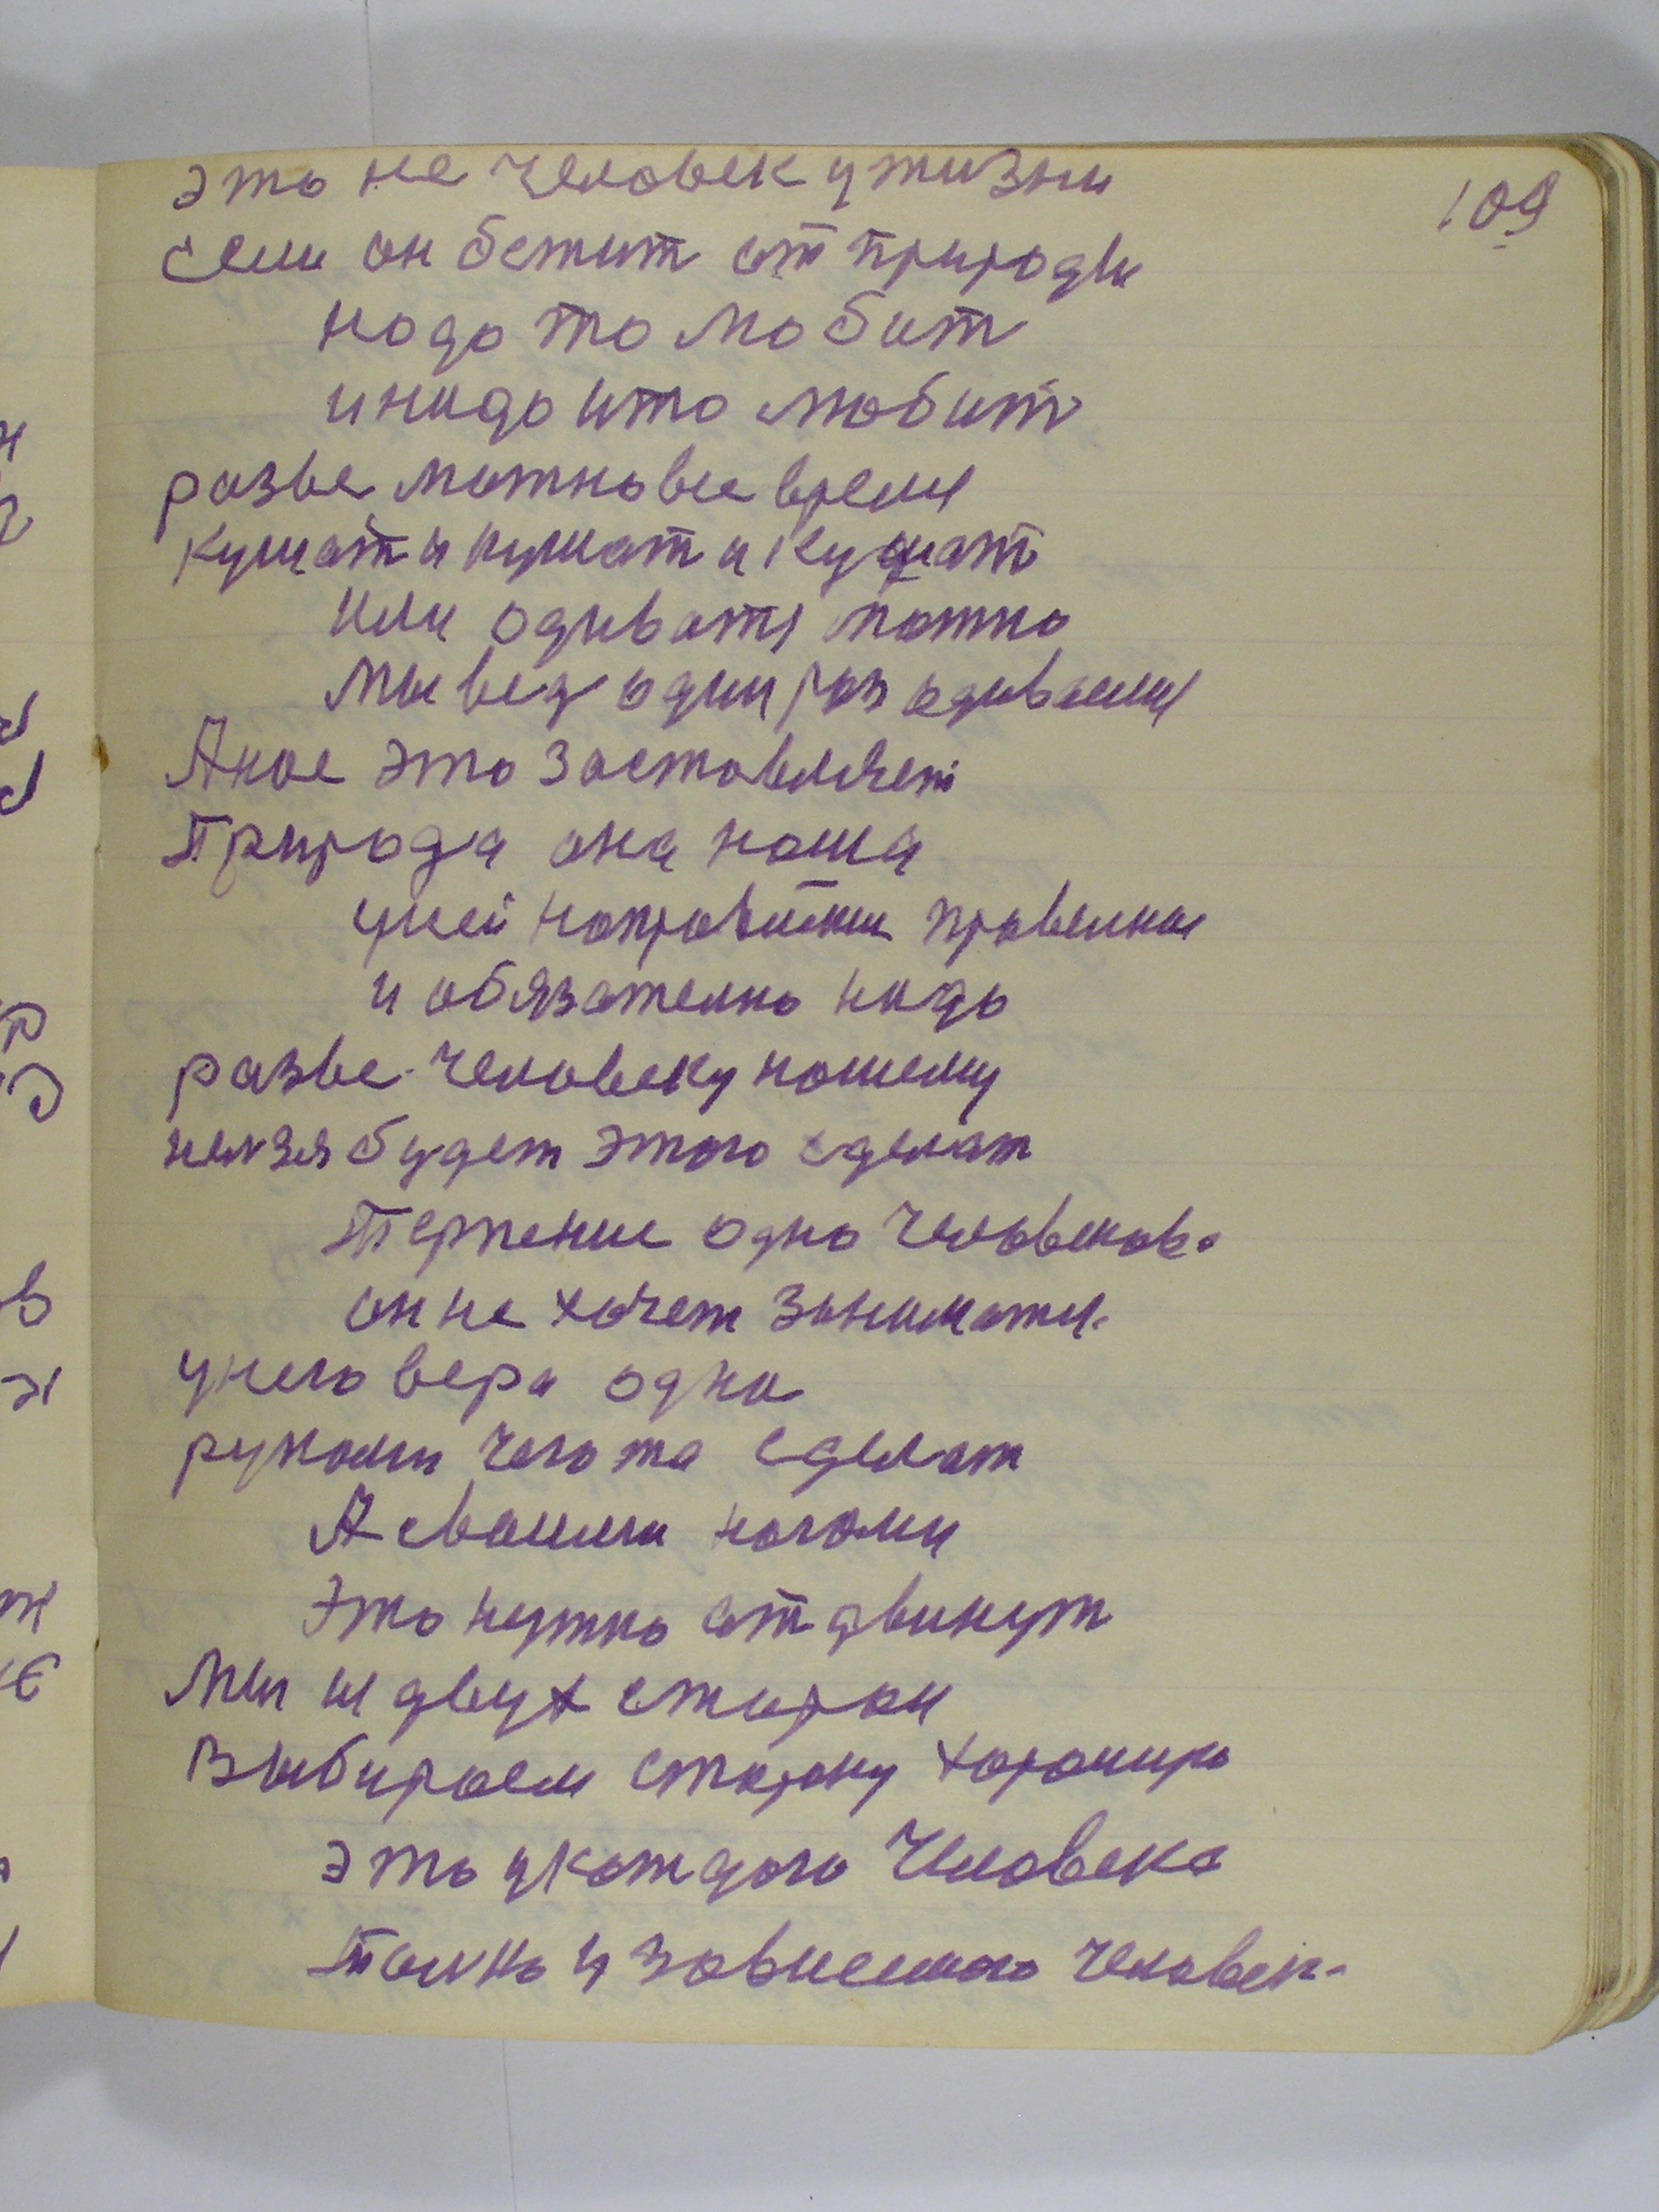 109
это не человек у жизни
если он бежит от природы
надо то любит
и надо ито любит
разве можно все время
кушат и кушат и кушат
Или одиватя можно
Мы вед один раз одиваемя
А нас это заставляет
Природа она наша
у ней направитки правелная
и обязателно надо
разве человеку нашему
нелзя будет этого сделат
Терпение одно человеков.
он не хочет заниматя.
у него вера одна
руками чего та сделат
А своими ногами
Это нужно отдвинут
Мы из двух старон
Выбираем старану харошую
это у каждого человека
толко у зависемого человек.